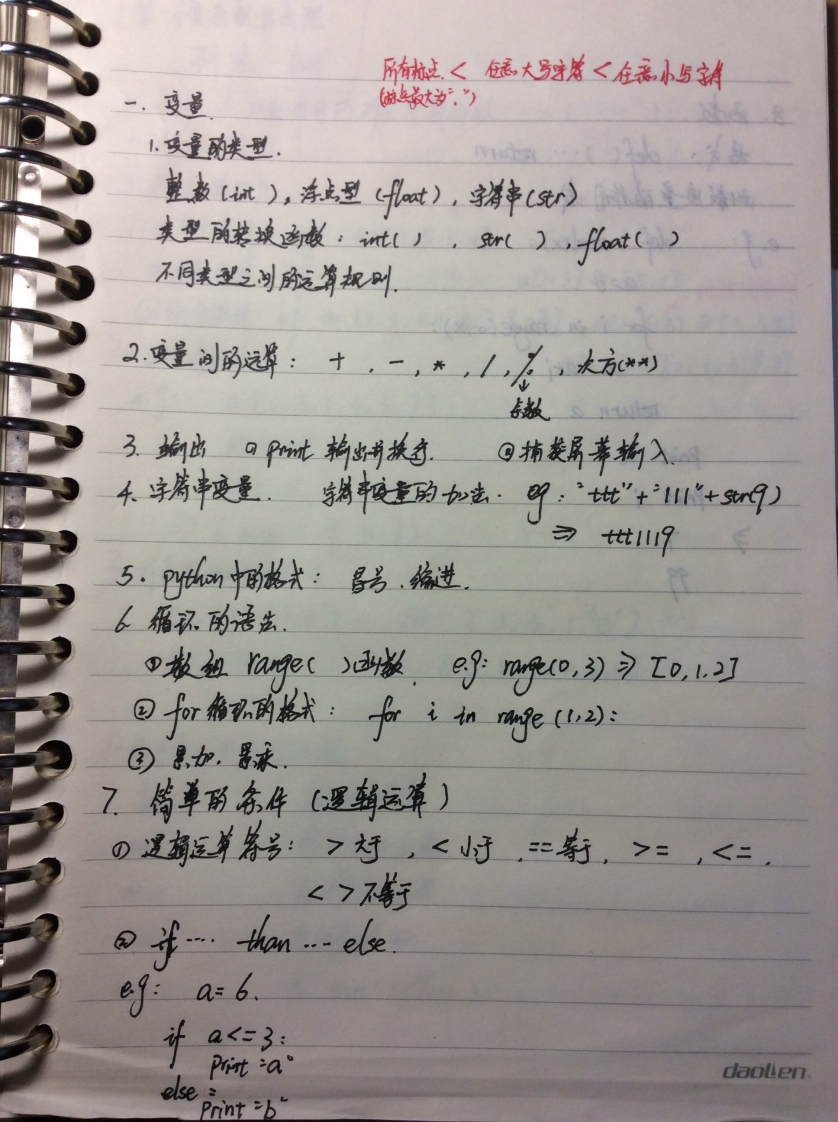 所有标点 < 任意大写字符 < 任意小写字符
(标点最大为".")
一. 变量
1.变量的类型.
整数(int), 浮点型(float), 字符串(str)
类型的转换函数: int( ) , str( ) , float( )
不同类型之间的运算规则.
2.变量间的运算: + , - , * , / , % , 次方(**)
↓
余数
3. 输出 ① print 输出并换行. ② 捕获屏幕输入.
4. 字符串变量. 字符串变量的加法. eg: "ttt"+"111"+str(9)
⇒ ttt1119
5. python中的格式: 冒号, 缩进.
6. 循环的语法.
①数组 range( )函数. e.g: range(0,3) ⇒ [0,1,2]
② for循环的格式: for i in range (1,2):
③ 累加. 累乘.
7. 简单的条件 (逻辑运算)
① 逻辑运算符号: > 大于 , < 小于 , == 等于, >= , <= ,
< > 不等于
② if ···· than ··· else.
e.g: a= 6.
if a<=3:
print "a"
else:
print "b"
daolen